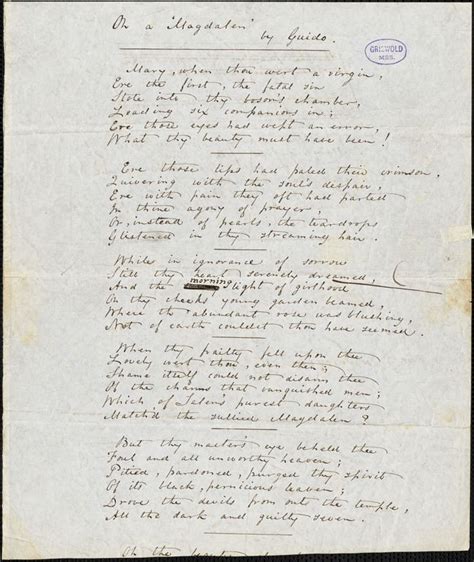 On a 'Magdalen'
by Guido.
GRISWOLD
MSS.
Mary, when thou wert a virgin,
Ere the first, the fatal sin
Stole into thy bosom's chamber,
Leading six companions in;
Ere those eyes had wept an error,
What thy beauty must have been!
Ere those lips had paled their crimson,
Quivering with the soul's despair,
Ere with pain they oft had parted
In thine agony of prayer,
Or, instead of pearls, the teardrops
Glistened in thy streaming hair.
While in ignorance of sorrow
Still thy heart serenely dreamed,
And the morning light of girlhood
On thy cheeks young garden beamed,
Where the abundant rose was blushing,
Not of earth couldst thou have seemed.
When thy frailty fell upon thee
Lovely wert thou, even then;
Shame itself could not disarm thee
Of the charms that vanquished men;
Which of Salem's purest daughters
Match'd the sullied Magdalen?
But thy master's eye beheld thee
Foul and all unworthy heaven;
Pitied, pardoned, purged thy spirit
Of its black, pernicious leaven;
Drove the devils from out the temple,
All the dark and guilty seven.
Oh the beauty